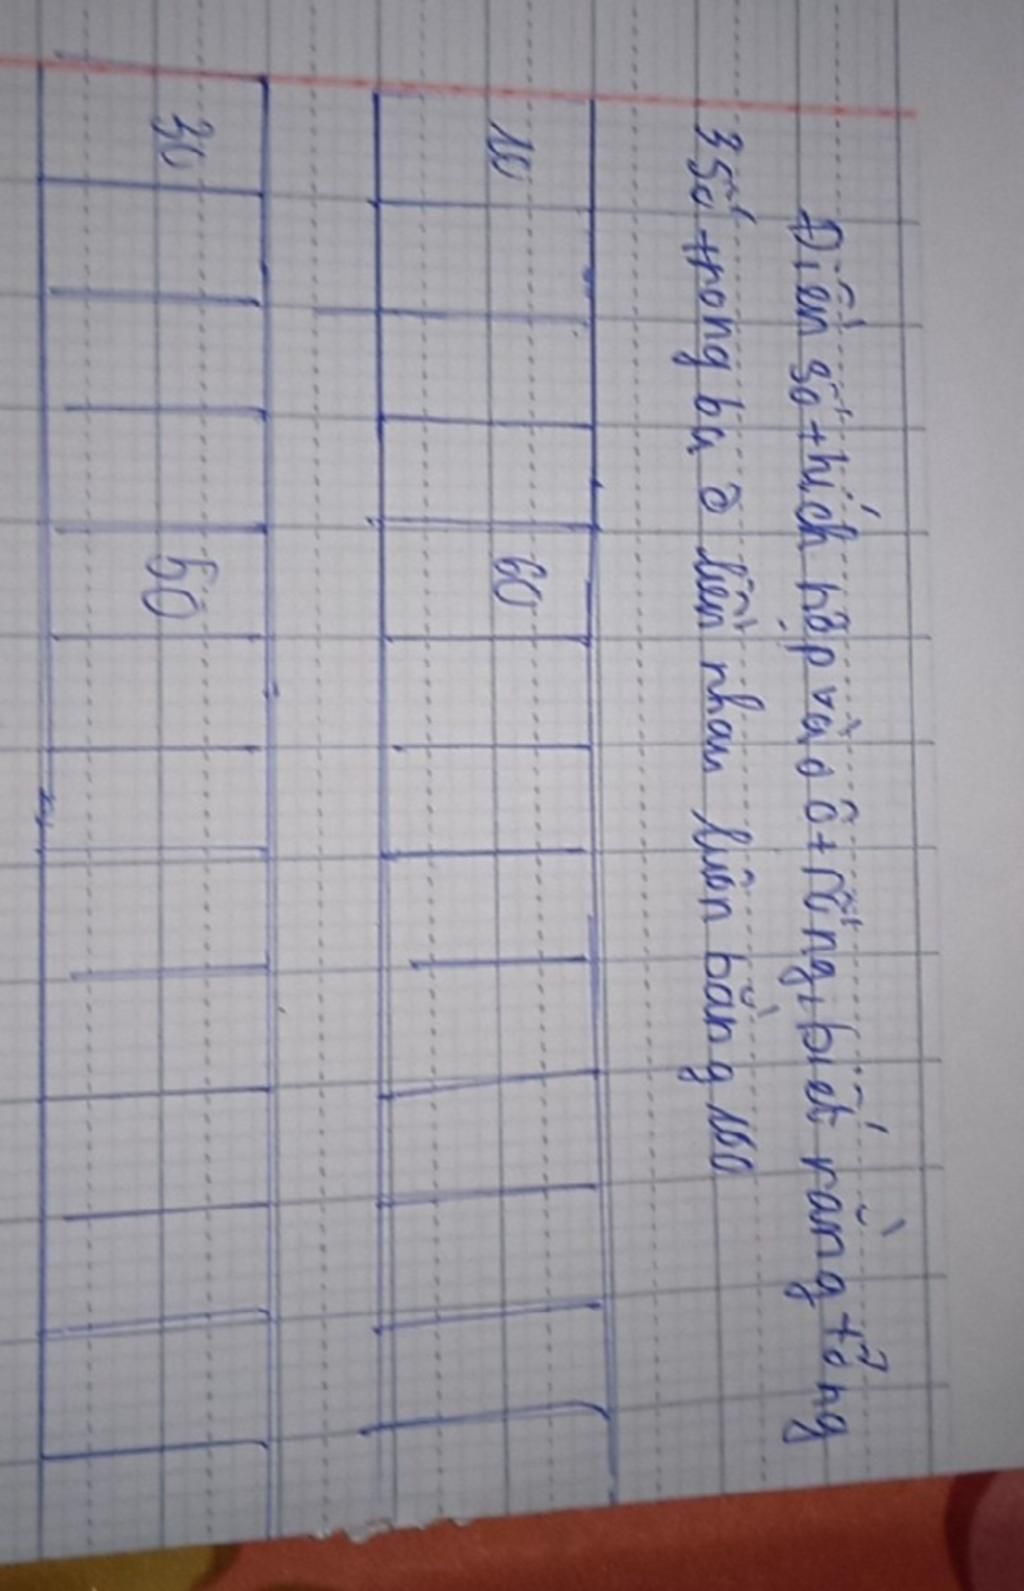 Điền số thích hợp vào ô trống, biết rằng tổng
3 số trong ba ô liền nhau luôn bằng 100
10 60
30 50